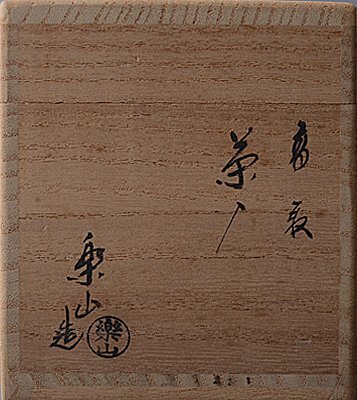 高取
茶入
楽山造
樂山